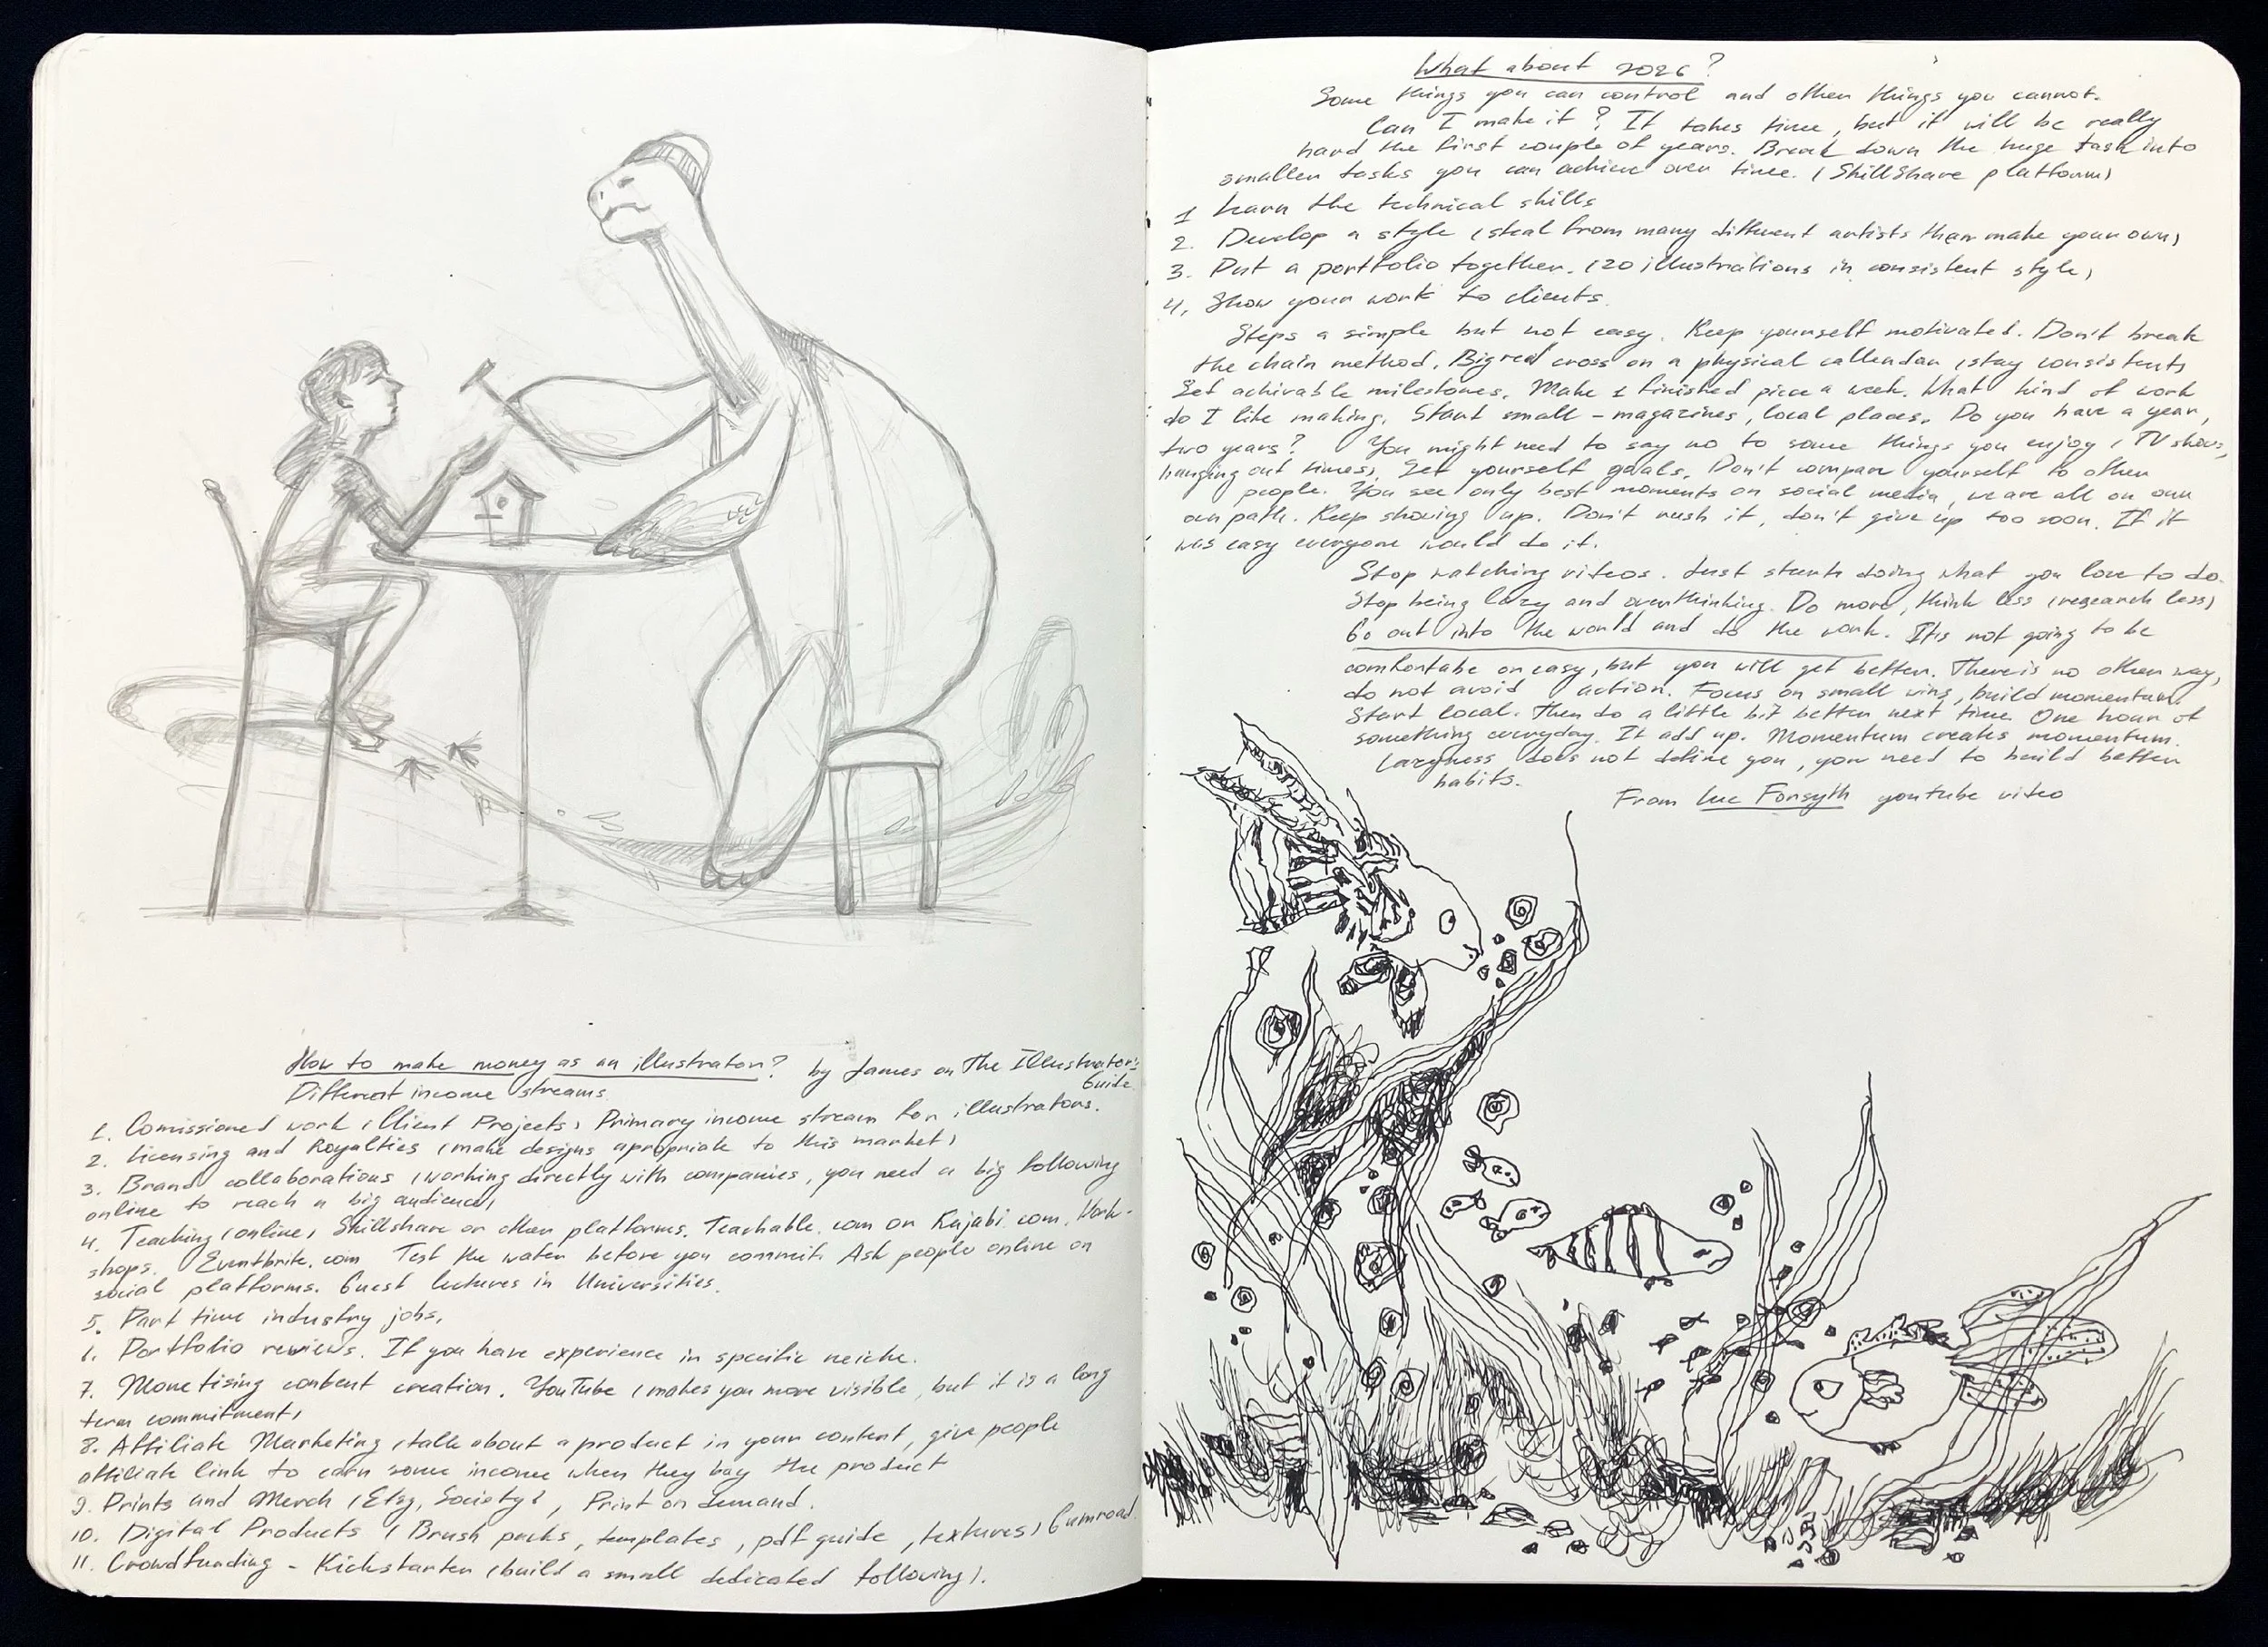 How to make money as an illustrator? by James on The Illustrator's
Guide
Different income streams.
1. Comissioned work (Client Projects) Primary income stream for illustrators.
2. Licensing and Royalties (make designs apropriate to this market)
3. Brand collaborations (working directly with companies, you need a big following
online to reach a big audience)
4. Teaching (online) Skillshare or other platforms. Teachable.com or Kajabi.com. Work-
shops. Eventbrite.com Test the water before you commit. Ask people online on
social platforms. Guest lectures in Universities.
5. Part time industry jobs.
6. Portfolio reviews. If you have experience in specific neiche.
7. Monetising content creation. YouTube (makes you more visible, but it is a long
term commitment)
8. Affiliate Marketing (talk about a product in your content, give people
affiliate link to earn some income when they buy the product
9. Prints and Merch (Etsy, Society6), Print on demand.
10. Digital Products (Brush packs, templates, pdf guide, textures) Gumroad.
11. Crowdfunding - Kickstarter (build a small dedicated following).
What about 2026?
Some things you can control and other things you cannot.
Can I make it? It takes time, but it will be really
hard the first couple of years. Break down the huge task into
smaller tasks you can achieve over time. (SkillShare platform)
1 Learn the technical skills
2. Develop a style (steal from many different artists than make your own)
3. Put a portfolio together. (20 illustrations in consistent style)
4. Show your work to clients.
Steps a simple but not easy. Keep yourself motivated. Don't break
the chain method. Big red cross on a physical callendar (stay consistent)
Set achivable milestones. Make 1 finished piece a week. What kind of work
do I like making. Start small - magazines, local places. Do you have a year,
two years? You might need to say no to some things you enjoy (TV shows,
hanging out times). Set yourself goals. Don't compare yourself to other
people. You see only best moments on social media, we are all on our
own path. Keep showing up. Don't rush it, don't give up too soon. If it
was easy everyone would do it.
Stop watching videos. Just start doing what you love to do.
Stop being lazy and overthinking. Do more, think less (research less)
Go out into the world and do the work. It is not going to be
comfortabe or easy, but you will get better. There is no other way,
do not avoid action. Focus on small wins, build momentum.
Start local. Then do a little bit better next time. One hour of
something everyday. It add up. Momentum creates momentum.
Lazyness does not define you, you need to build better
habits.
From Luc Forsyth youtube video